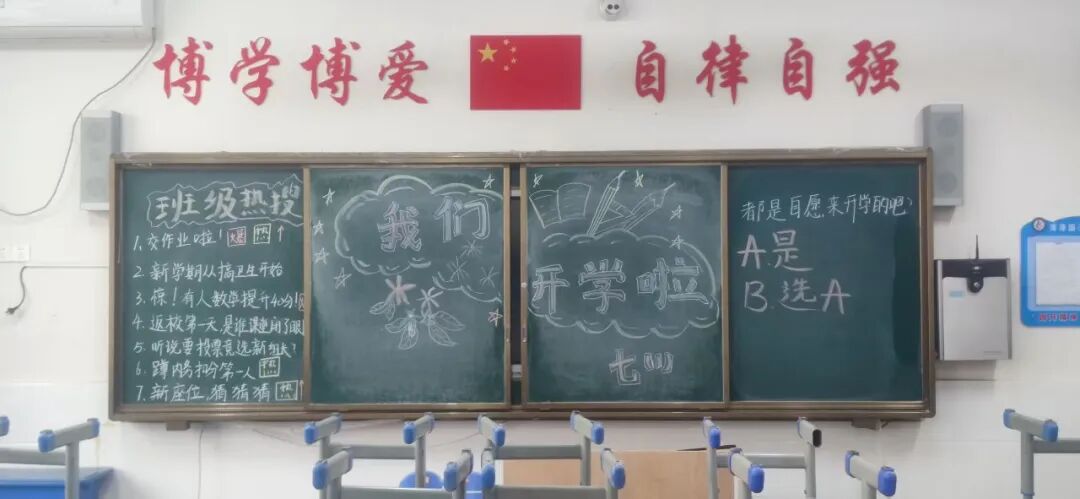 博学博爱
自律自强
班级热搜
1. 交作业啦！爆 热 ↑
2. 新学期从搞卫生开始
3. 惊！有人数学提升40分！
4. 返校第一天,是谁课里闭了眼
5. 听说要投票竞选新班长？
6. 蹲内务扣分第一人 热
7. 新座位,猜猜猜 热 ↑
我们
开学啦
七(1)
都是自愿来开学的吧？
A.是
B.选A